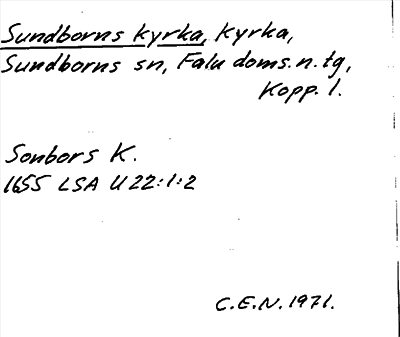 Sundborns kyrka, kyrka,
Sundborns sn, Falu doms.n.tg,
Kopp. l.
Sonbors K.
1655 LSA U22:1:2
C.E.N. 1971.